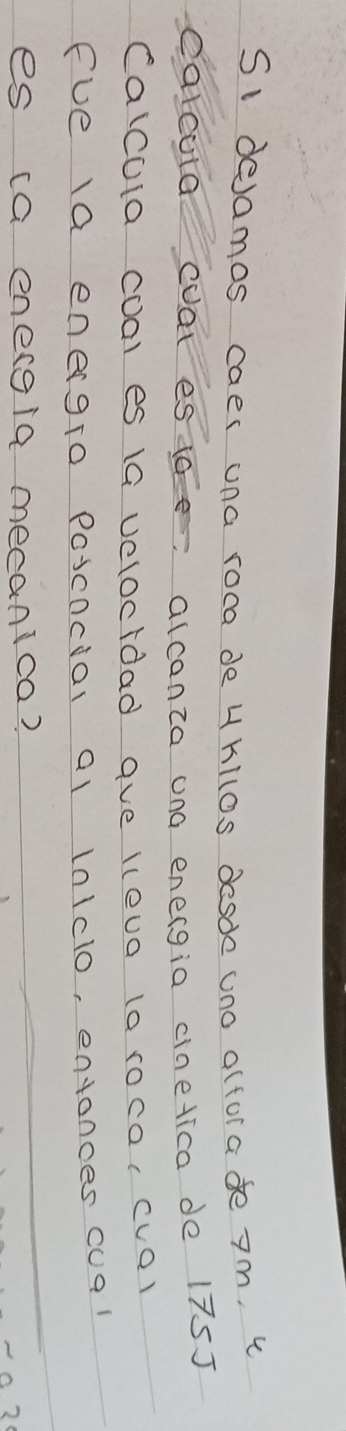 Si dejamos caer una roca de 4 kilos desde una altura de 7m. y
calcula cual es la e. alcanza una energia cinetica de 175J
Calcula cual es la velocidad que lleva la roca, cual
fue la energia potencial al inicio, entonces cual
es la energia mecanica?